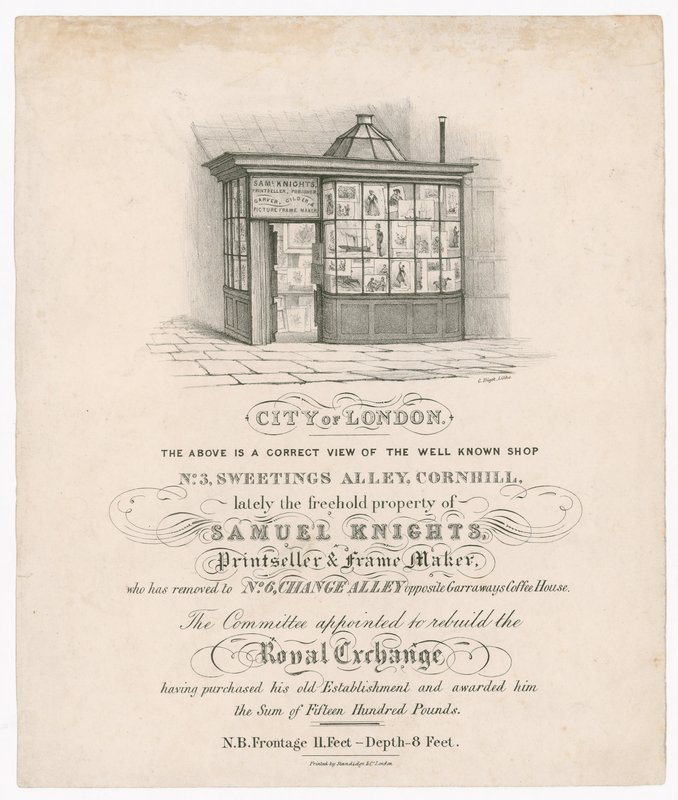 SAML. KNIGHTS,
PRINTSELLER, PUBLISHER,
CARVER, GILDER, &
PICTURE FRAME MAKER
CITY OF LONDON.
THE ABOVE IS A CORRECT VIEW OF THE WELL KNOWN SHOP
No. 3, SWEETINGS ALLEY, CORNHILL,
lately the freehold property of
SAMUEL KNIGHTS,
Printseller & Frame Maker,
who has removed to No. 6, CHANGE ALLEY opposite Garraways Coffee House.
The Committee appointed to rebuild the
Royal Exchange
having purchased his old Establishment and awarded him
the Sum of Fifteen Hundred Pounds.
N.B. Frontage 11, Feet – Depth – 8 Feet.
Printed by Standidge & Co. London